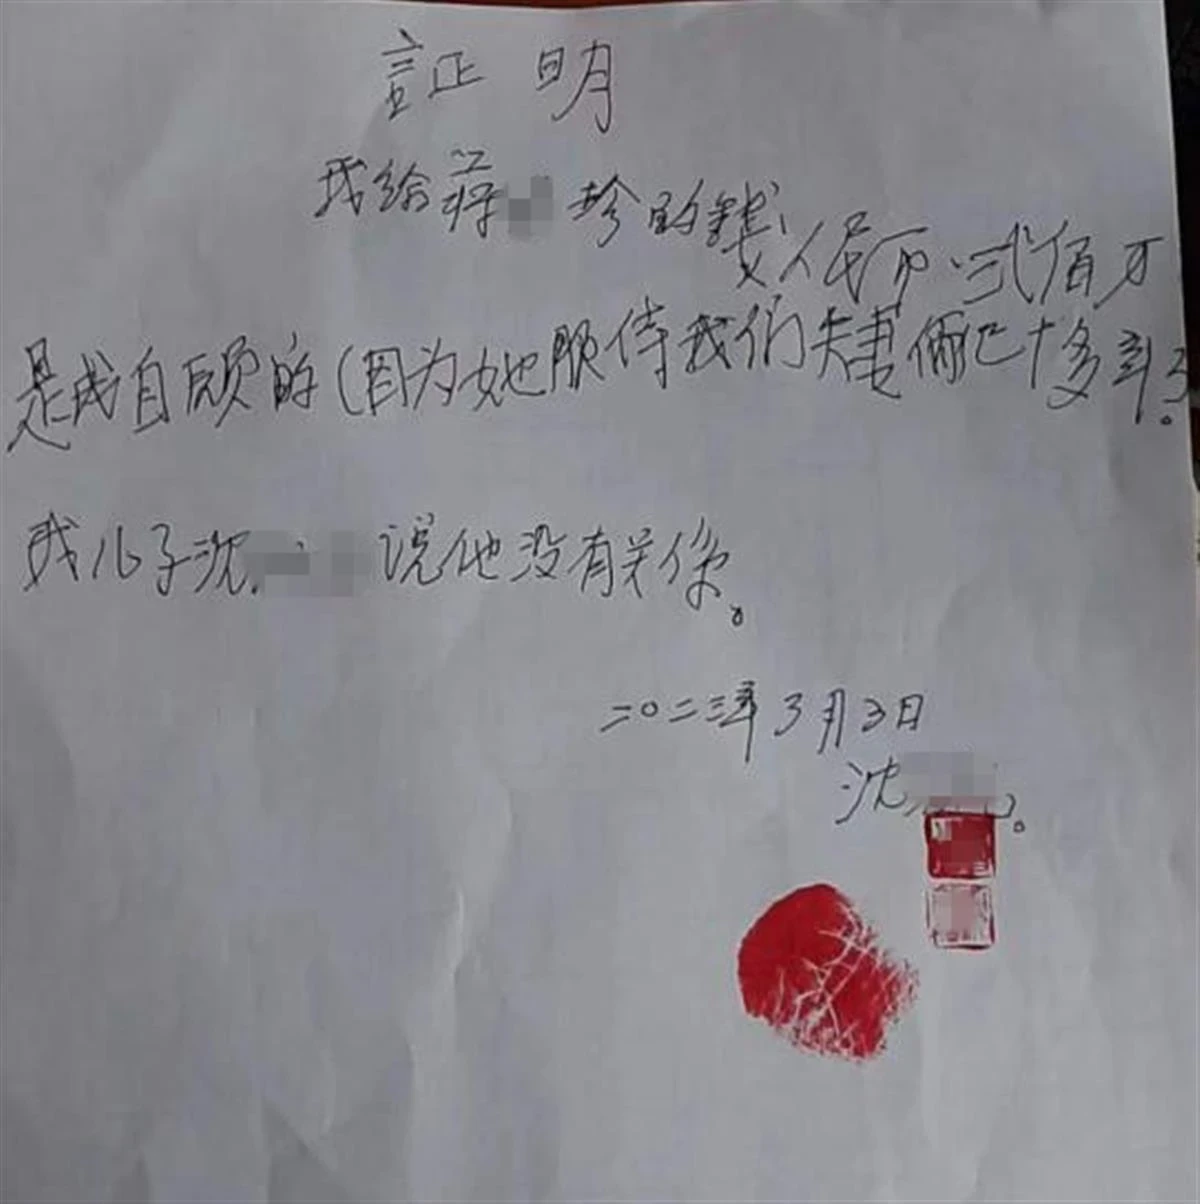 証明
我给蒋 珍的钱人民币、弍佰万
是我自愿的(因为她服侍我们夫妻俩已十多年了。
我儿子沈 说他没有关系。
二〇二三年3月3日
沈